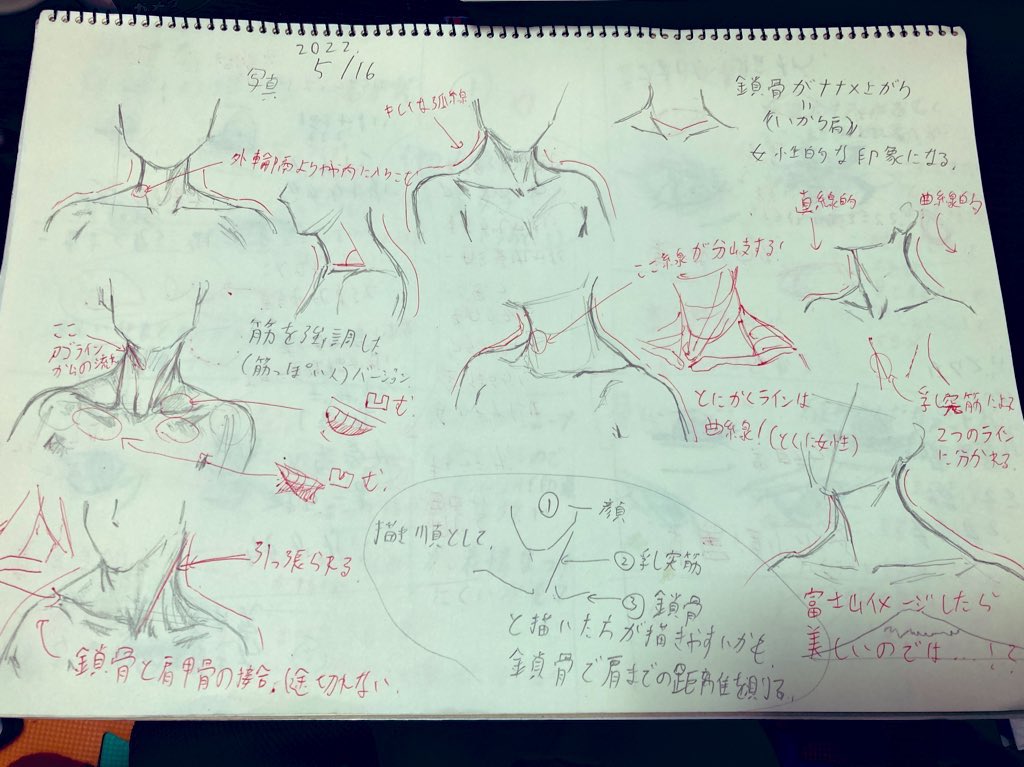 2022.
5/16
写真
外輪郭よりやや内に入りこむ
やしくなる弧線
鎖骨がナナメ上がり
〃
(いかり肩)
女性的な印象になる。
直線的
曲線的
ここ線が分岐する!
ここ
アゴライン
からの流れ
筋を強調した
(筋っぽい人)バージョン
凹む。
凹む。
とにかくラインは
曲線!(とくに女性)
乳突筋による
2つのライン
に分かれる
引っ張られる
鎖骨と肩甲骨の接合。途切れない。
描き順として、
① 顔
②乳突筋
③ 鎖骨
と描いたらが描きやすいかも。
鎖骨で肩までの距離を測る。
富士山イメージしたら
美しいのでは…!?